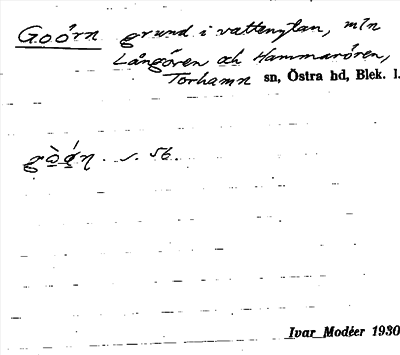 Goörn grund i vattenytan, mln
Långören och Hammarören,
Torhamn sn, Östra hd, Blek. l.
s. 56.
Ivar Modéer 1930